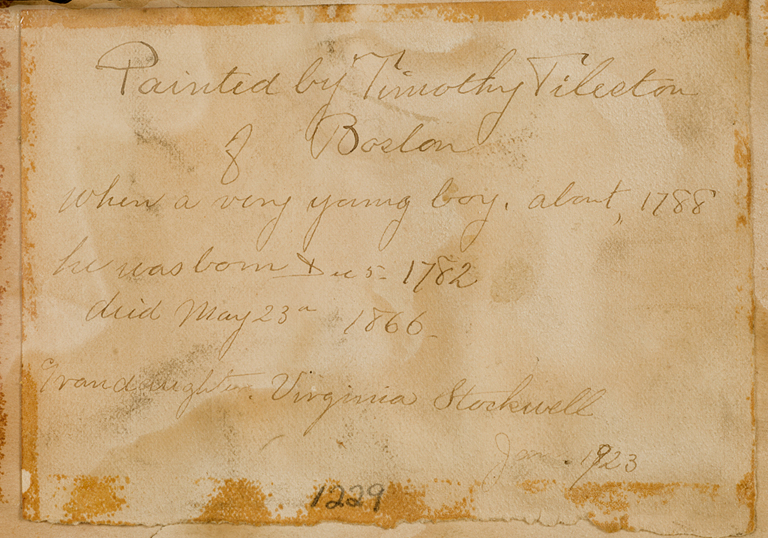 Painted by Timothy Tileston
of Boston
when a very young boy. about, 1788
he was born Dec 5- 1782
died May 23d 1866-
Granddaughter. Virginia Stockwell
Jan. 1923
1229